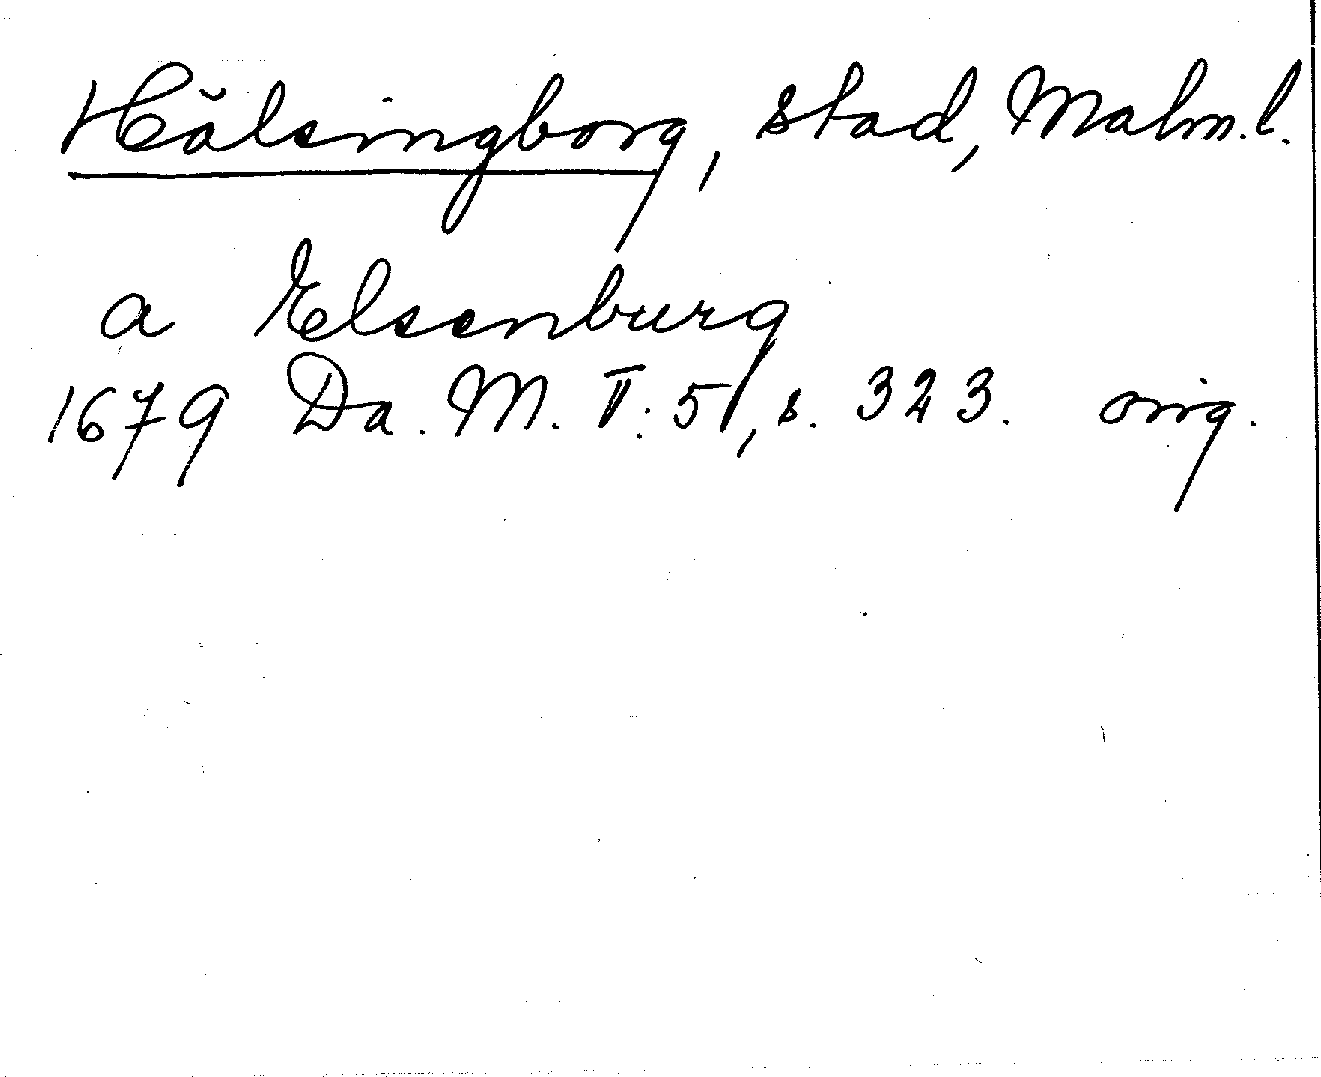 Hälsingborg, stad, Malm.l.
a Elsenburg
1679 Da. M. V. 5, s. 323. orig.